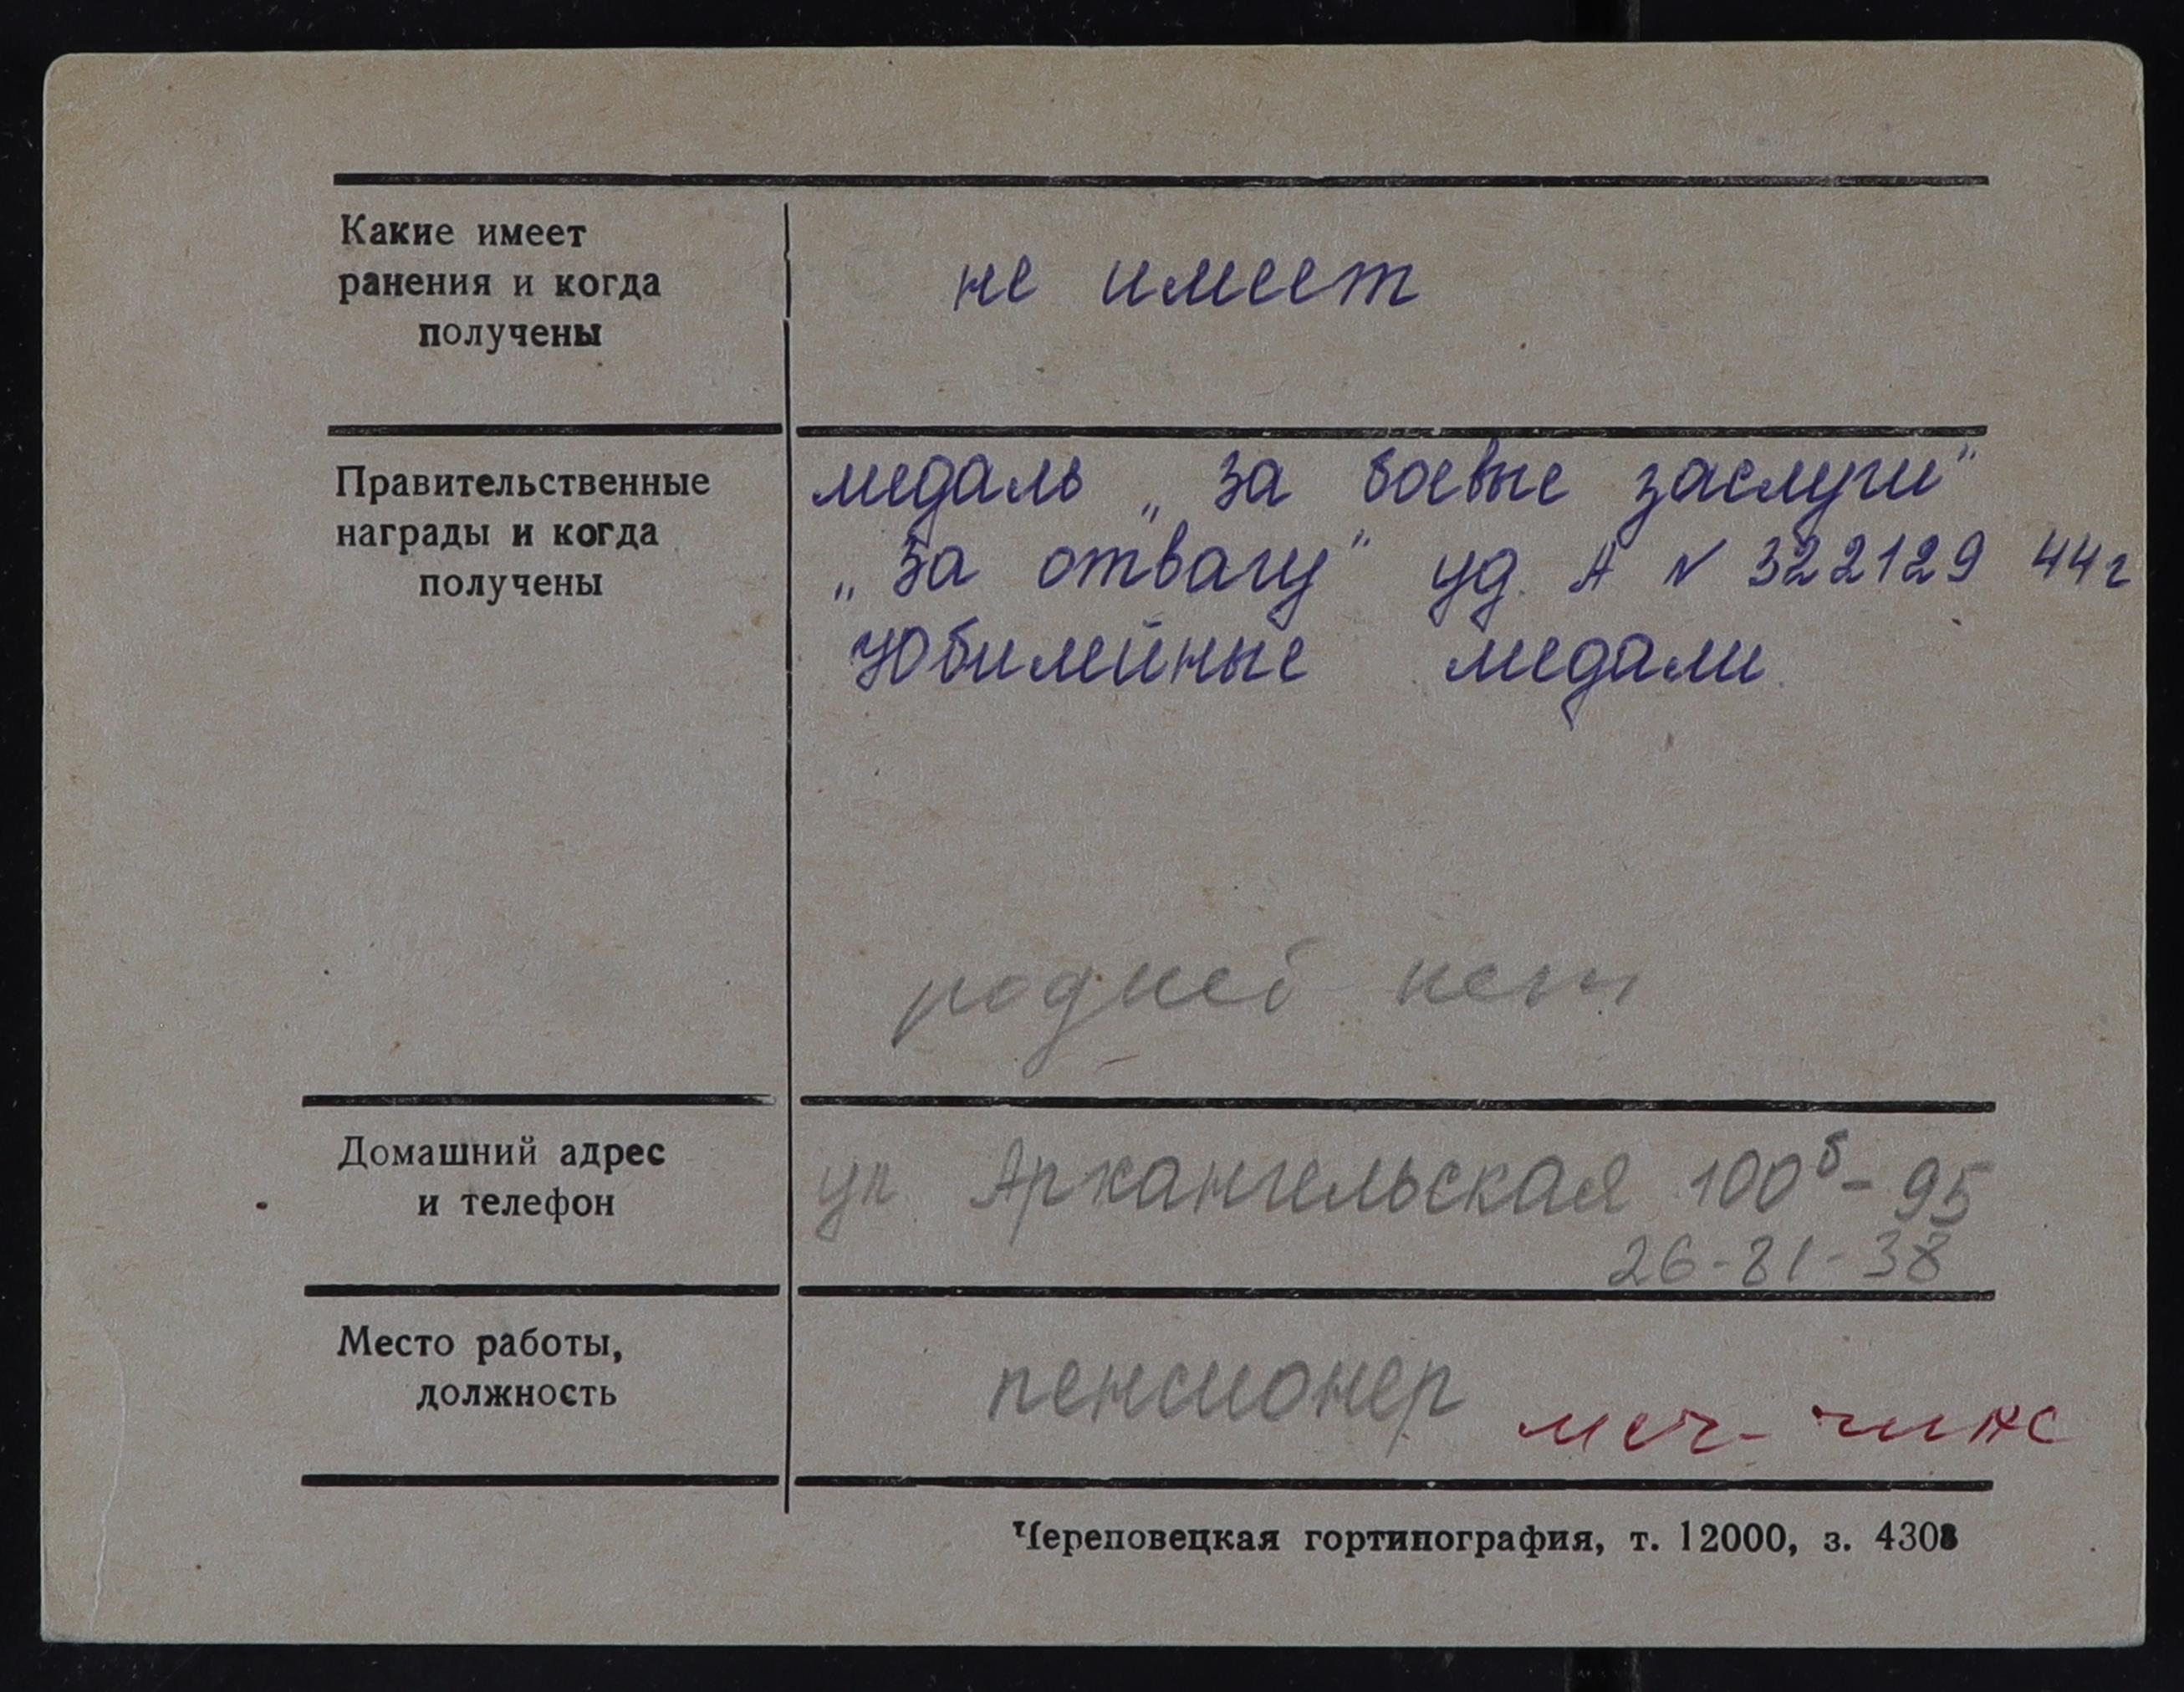 Какие имеет
ранения и когда
получены
не имеет
Правительственные
награды и когда
получены
медаль „за боевые заслуги"
„За отвагу" уд. А № 322129 44г
Юбилейные медали
родней нет
Домашний адрес
и телефон
ул. Архангельская 100б - 95
26-21-38
Место работы,
должность
пенсионер
Череповецкая гортипография, т. 12000, з. 4308